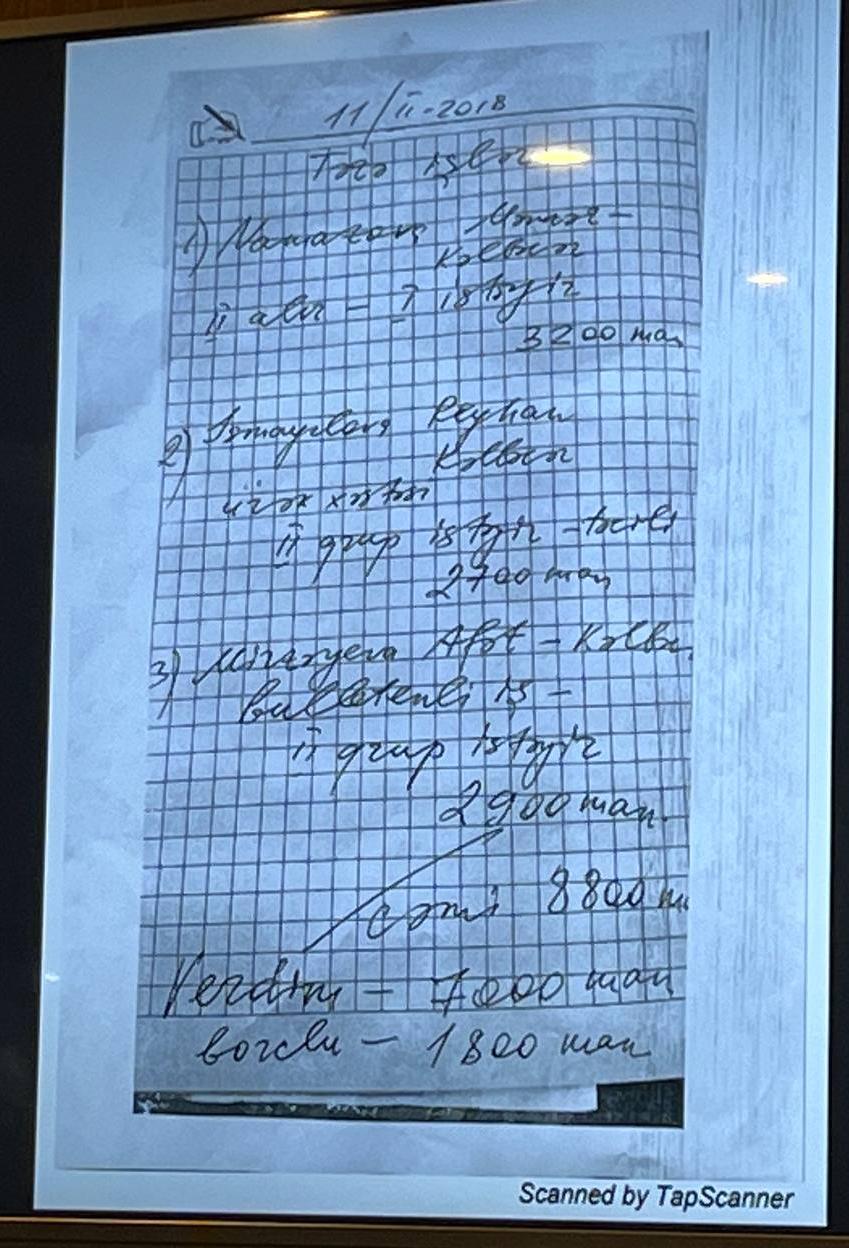 11/II-2018
Təzə işlər
1) Namazova
Kəlbəcər
II alır - I istəyir
3200 man
2) İsmayılova Reyhan
Kəlbəcər
ürək xəstəsi
II qrup istəyir -
2700 man
3) Afət - Kəlbə.
bulletenli iş -
II qrup istəyir
2900 man.
cəmi 8800 m
Verdim - 7000 man
borclu - 1800 man
Scanned by TapScanner